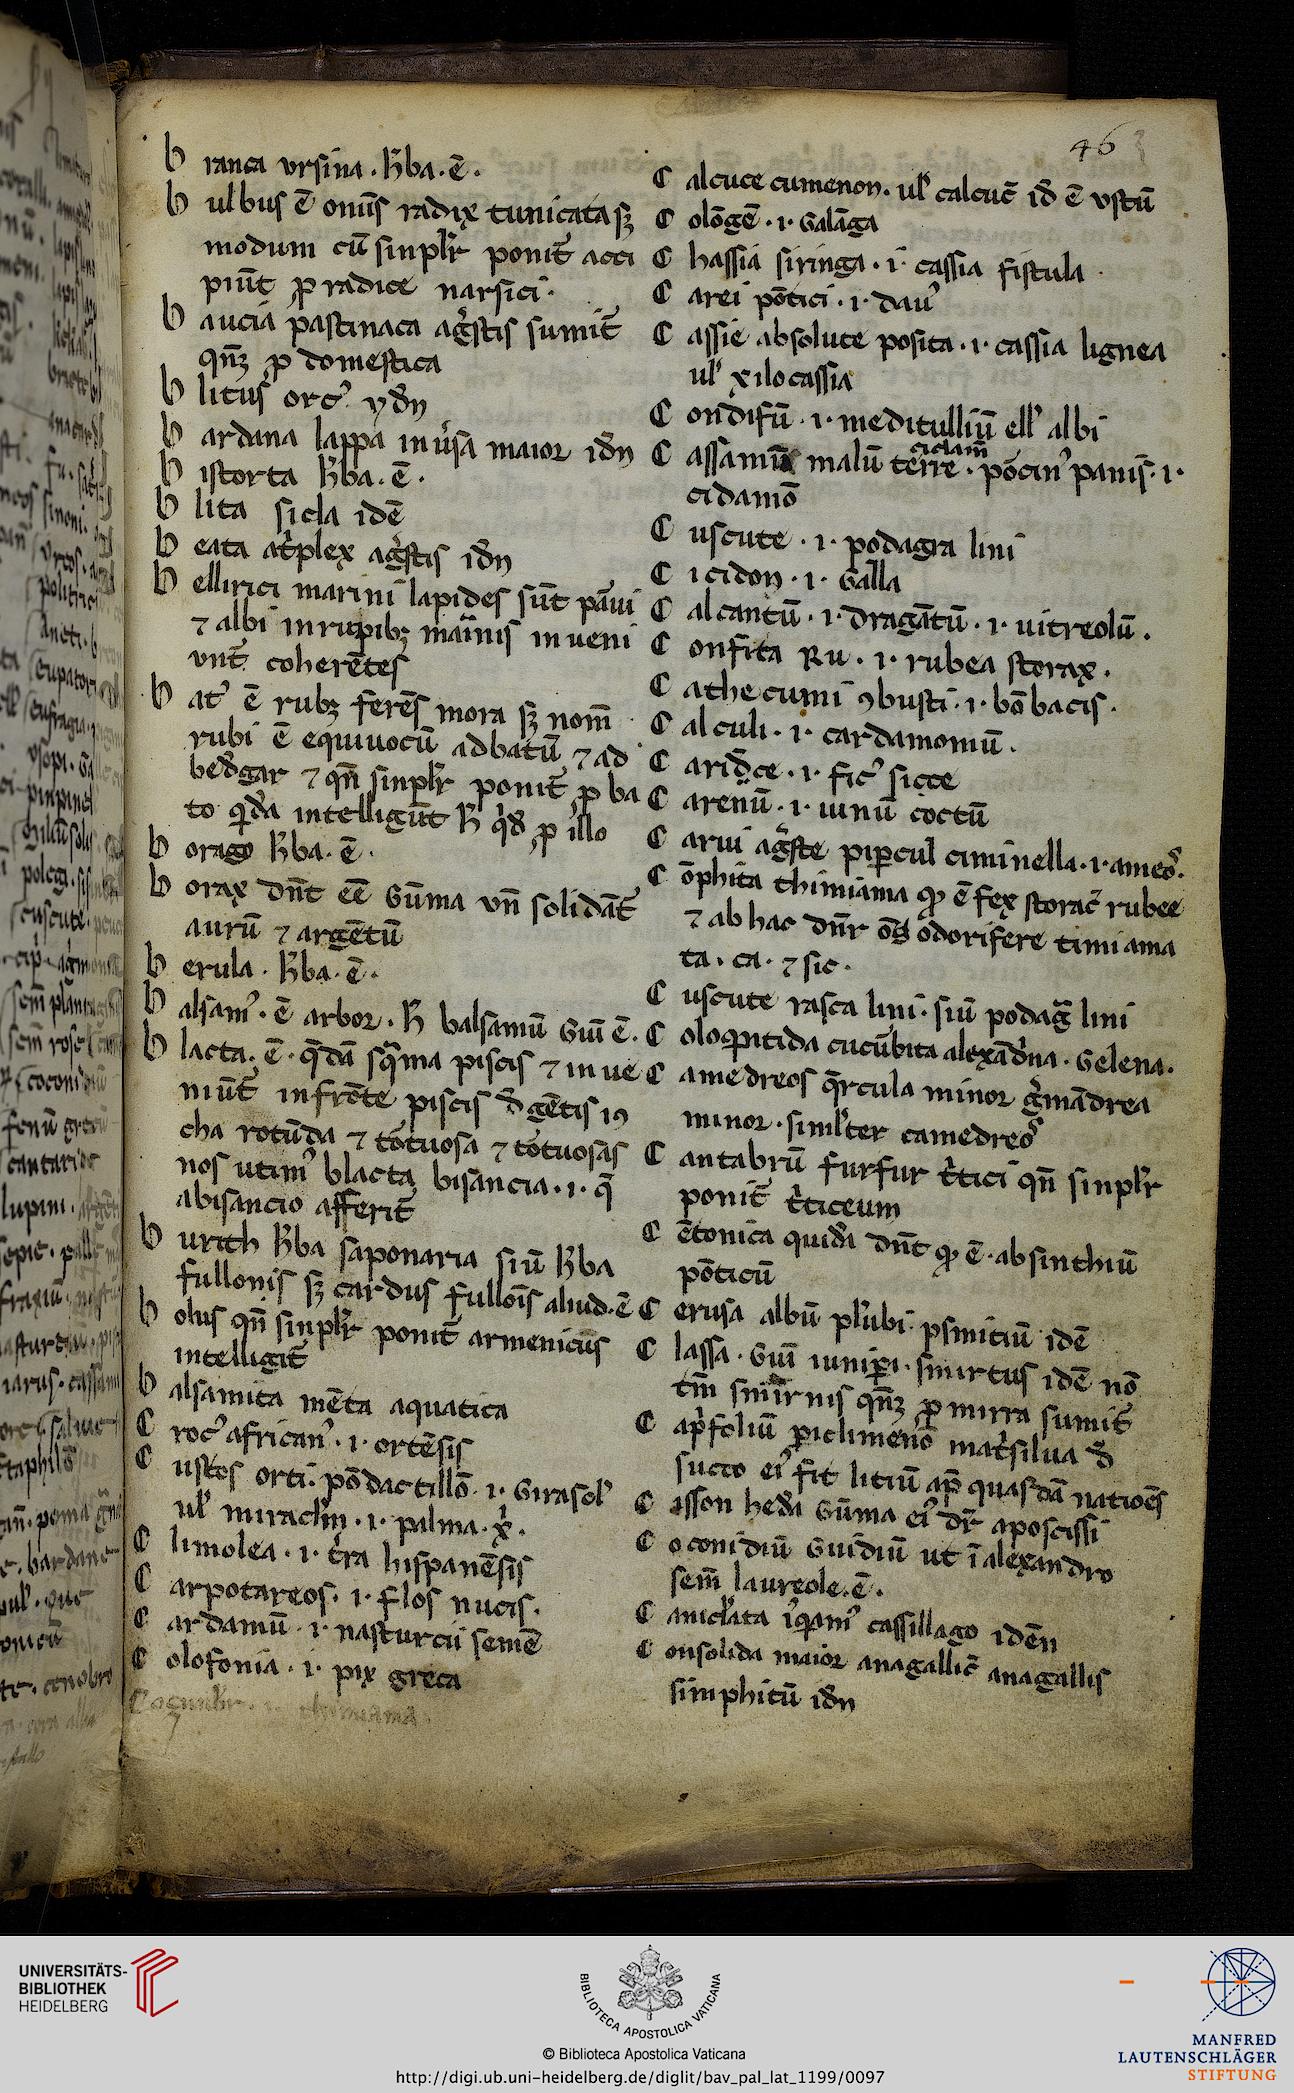 46
b ranca vrsina . h̄ba . ē .
b ulbus ē om̄s radix tunicata sꝫ
modum cū sinplr̄ ponit̄ acci
piūt ꝓ radice narsici ·
b aucia pastinaca ag̊stis sumit̄
qn̄ꝫ ꝓ domestica
b litus orc᷒ ydn̄
b ardana lappa inūsa maior idn̄
b istorta h̄ba . ē .
b lita sicla idē
b eata at̊plex ag̊stis idn̄
b ellirici marini lapides sūt pāui
⁊ albi in rupibꝫ mar̄inis in ueni
vnt̄ coherētes
b at᷒ ē rubꝫ ferēs mora sꝫ nom̄
rubi ē equiuocū ad batū ⁊ ad
bed̄gar ⁊ qn̄ sinplr̄ ponit̄ ꝓ ba
to qd̄a intelligūt h̄ ꝓ illo
b orago h̄ba . ē .
b orax dn̄t eē gūma vn̄ solidāt̄
aurū ⁊ argētū
b erula . h̄ba . ē .
b alsam᷒ . ē arbor . h̄ balsamū gūi ē .
b lacta . ē . q̄dā sq̄ma piscis ⁊ in ue
niūt̄ in frōte piscis d̄gētis ıꝯ
cha rotūda ⁊ tōtuosa ⁊ tōtuosas
nos utim᷒ blacta bisancia . ı . q̄
a bisancio afferit̄
b urith h̄ba saponaria siū h̄ba
fullonis sꝫ cardus fullōis aliud . ē
b olus qn̄ sinplr̄ ponit̄ armenicus
intelligit̄
b alsamita mēta aquatica
C roc᷒ african᷒ . ı . ortēsis
C ustos orti . pōdactillō . ı . girasol᷒
ul̄ miraclm̄ . ı . palma . x̊ .
C limolea . ı . t̄ra hispanēsis
C arpotareos . ı . flos nucis .
C ardamū . ı . nasturcii semē
C olofonia . ı . pix greca
C alcuce cumenon . ul̄ calcuc̄ id ē vstū
C olōgē . ı . galāga
C hassia siringa . ı . cassia fistula
C arei pōtici . ı . dau᷒
C assie absolute posita . ı . cassia lignea
ul̄ xilocassia
C ondisū . ı . meditulliū ell᷒ albi
ciclam̄
C assamū malū terre . pōcin᷒ panis . ı .
cidamō
C uscute . ı . podagra lini
C icidon . ı . galla
C alcantū . ı . dragātū . ı . uitreolū .
C onfita Ru . ı . rubea storax .
C athecumi ꝯbusti . ı . bōbacis .
C alculi . ı . cardamomū .
C arid̄ce . ı . fic᷒ sicce
C arenū . ı . uinū coctū
C arui ag̊ste piꝑcul ciminella . ı . ameo᷒ .
C ōphita thimiama ꝙ ē fex storac̄ rubee
⁊ ab hac dn̄r om̄s odorifere timiama
ta . ca . ⁊ sic .
C uscute rasca lini . siū podag̅ lini
C oloqntida cucūbita alexād̄na . gelena .
C amedreos q̄rcula minor g̊mādrea
minor . siml̄ter camedreo᷒
C antabrū furfur t̊tici qn̄ sinplr̄
ponit̄ t̊ticeum
C ētonica quid̄a dn̄t ꝙ ē . absinthiū
pōticū
C erusa albū plūbi . psimitiū idē
C lassa . gūi iunipi . smirtus idē nō
tm̄ smirnis qn̄ꝫ ꝓ mirra sumit̄
C ap̊foliū piclimenō mat̊silua d̄
succo ei᷒ fit litiū ap̄ quasdā natiōes
C isson hed̄a gūma ei᷒ dr̄ aposcissi
C oconidiū guidiū ut ī alexandro
sem̄ laureole . ē .
C anicl̄ata iqam᷒ cassillago idēn
C onsolida maior anagallic̄ anagallis
simphitū idn̄
UNIVERSITÄTS-
BIBLIOTHEK
HEIDELBERG
BIBLIOTECA APOSTOLICA VATICANA
© Biblioteca Apostolica Vaticana
http://digi.ub.uni-heidelberg.de/diglit/bav_pal_lat_1199/0097
MANFRED
LAUTENSCHLÄGER
STIFTUNG